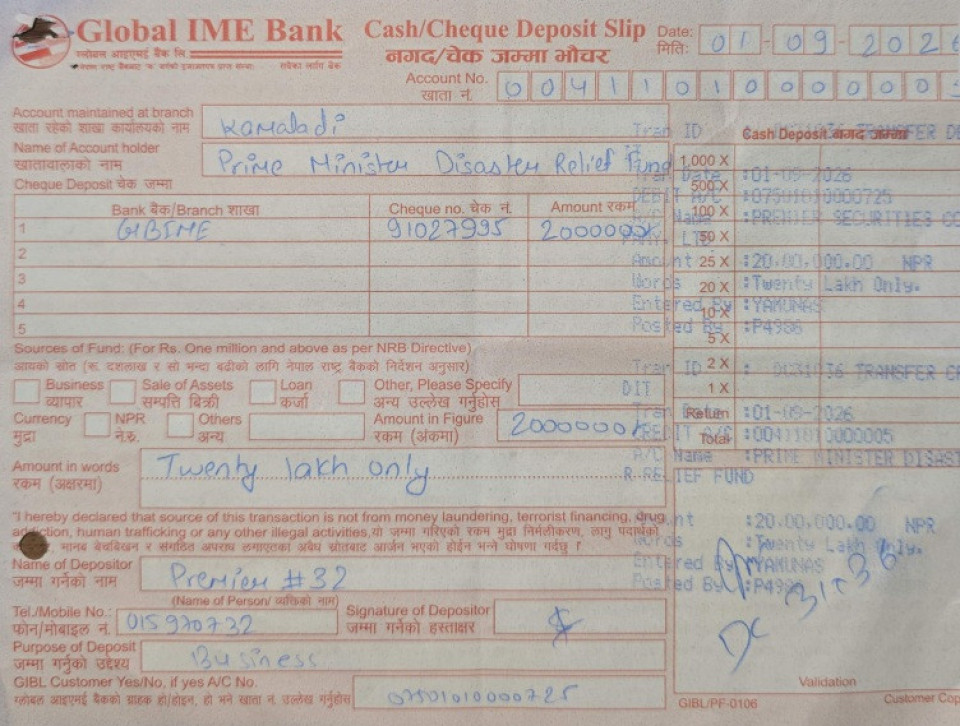 Global IME Bank
ग्लोबल आइएमई बैंक लि
Cash/Cheque Deposit Slip
नगद/चेक जम्मा भौचर
Date: 01-09-2026
मिति:
Account No. 00411010000005
खाता नं.
Account maintained at branch Kamaladi
खाता रहेको शाखा कार्यालयको नाम
Name of Account holder Prime Minister Disaster Relief Fund
खातावालाको नाम
Cheque Deposit चेक जम्मा
Bank बैंक/Branch शाखा Cheque no. चेक नं. Amount रकम
1 GIBIME 91027995 2000000
2
3
4
5
Cash Deposit नगद जम्मा
1,000 X
500 X
100 X
50 X
25 X
20 X
10 X
5 X
2 X
1 X
Return
Total
Tran ID TRANSFER
Tran Date :01-09-2026
DEBIT A/C :07501010000725
A/C Name :PREMIER SECURITIES CO
Amount :20,00,000.00 NPR
Words :Twenty Lakh Only.
Entered By :YAMUNAS
Posted By :P4986
Sources of Fund: (For Rs. One million and above as per NRB Directive)
आयको स्रोत (रू. दशलाख र सो भन्दा बढीको लागि नेपाल राष्ट्र बैंकको निर्देशन अनुसार)
Business Sale of Assets Loan Other, Please Specify
व्यापार सम्पत्ति बिक्री कर्जा अन्य उल्लेख गर्नुहोस्
Currency NPR Others Amount in Figure 2000000
मुद्रा ने.रु. अन्य रकम (अंकमा)
Amount in words Twenty lakh only
रकम (अक्षरमा)
Tran ID TRANSFER
Tran Date :01-09-2026
CREDIT A/C :00411010000005
A/C Name :PRIME MINISTER DISAST
R RELIEF FUND
Amount :20,00,000.00 NPR
Words :Twenty Lakh Only.
Entered By :YAMUNAS
Posted By
"I hereby declared that source of this transaction is not from money laundering, terrorist financing, drug
addiction, human trafficking or any other illegal activities. यो जम्मा गरिएको रकम मुद्रा निर्मलीकरण, लागु पदार्थको
मानव बेचबिखन र संगठित अपराध लगाएतका अवैध स्रोतबाट आर्जन भएको होईन भन्ने घोषणा गर्दछु ।
Name of Depositor Premier #32
जम्मा गर्नेको नाम
(Name of Person/ व्यक्तिको नाम)
Tel./Mobile No.: 015970732 Signature of Depositor
फोन/मोबाइल नं. जम्मा गर्नेको हस्ताक्षर
Purpose of Deposit Business
जम्मा गर्नुको उद्देश्य
GIBL Customer Yes/No, if yes A/C No. 07501010000725
ग्लोबल आइएमई बैंकको ग्राहक हो/होइन, हो भने खाता नं. उल्लेख गर्नुहोस्
Validation
GIBL/PF-0106
Customer Cop